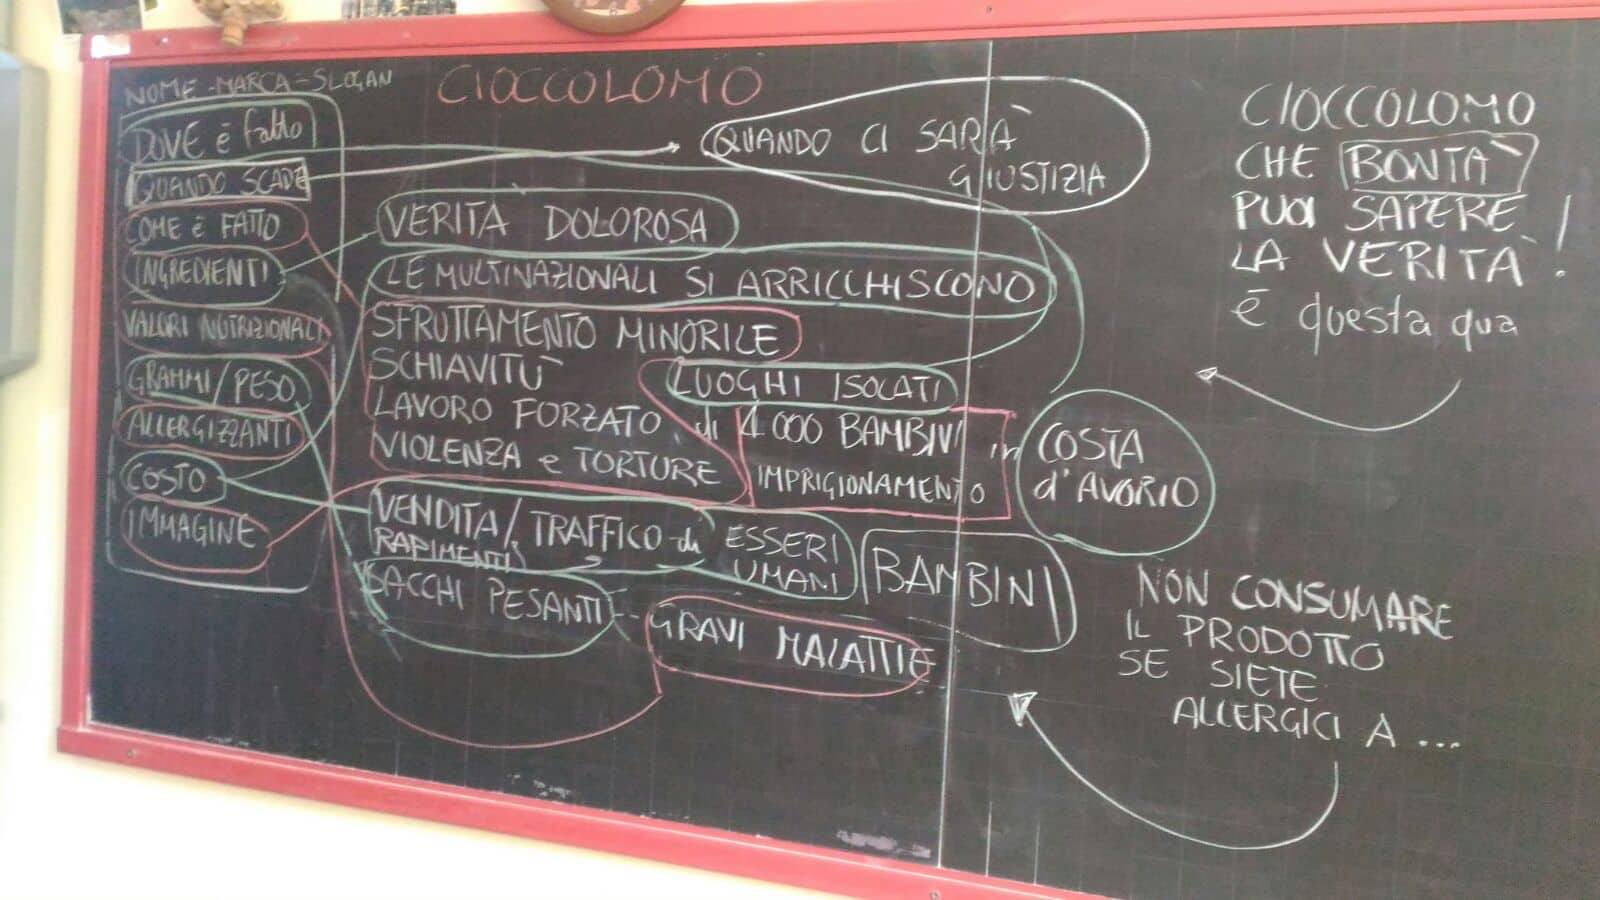 NOME - MARCA - SLOGAN
CIOCCOLOMO
DOVE è fatto
QUANDO SCADE
COME è FATTO
INGREDIENTI
VALORI NUTRIZIONALI
GRAMMI/PESO
ALLERGIZZANTI
COSTO
IMMAGINE
QUANDO CI SARÀ
GIUSTIZIA
VERITÀ DOLOROSA
LE MULTINAZIONALI SI ARRICCHISCONO
SFRUTTAMENTO MINORILE
SCHIAVITÙ
LUOGHI ISOLATI
LAVORO FORZATO di 4000 BAMBINI in COSTA
d'AVORIO
VIOLENZA e TORTURE
IMPRIGIONAMENTO
VENDITA/TRAFFICO di ESSERI
UMANI
RAPIMENTI
BAMBINI
SACCHI PESANTI -- GRAVI MALATTIE
CIOCCOLOMO
CHE BONTÀ
PUOI SAPERE
LA VERITÀ!
è questa qua
NON CONSUMARE
IL PRODOTTO
SE SIETE
ALLERGICI A ...